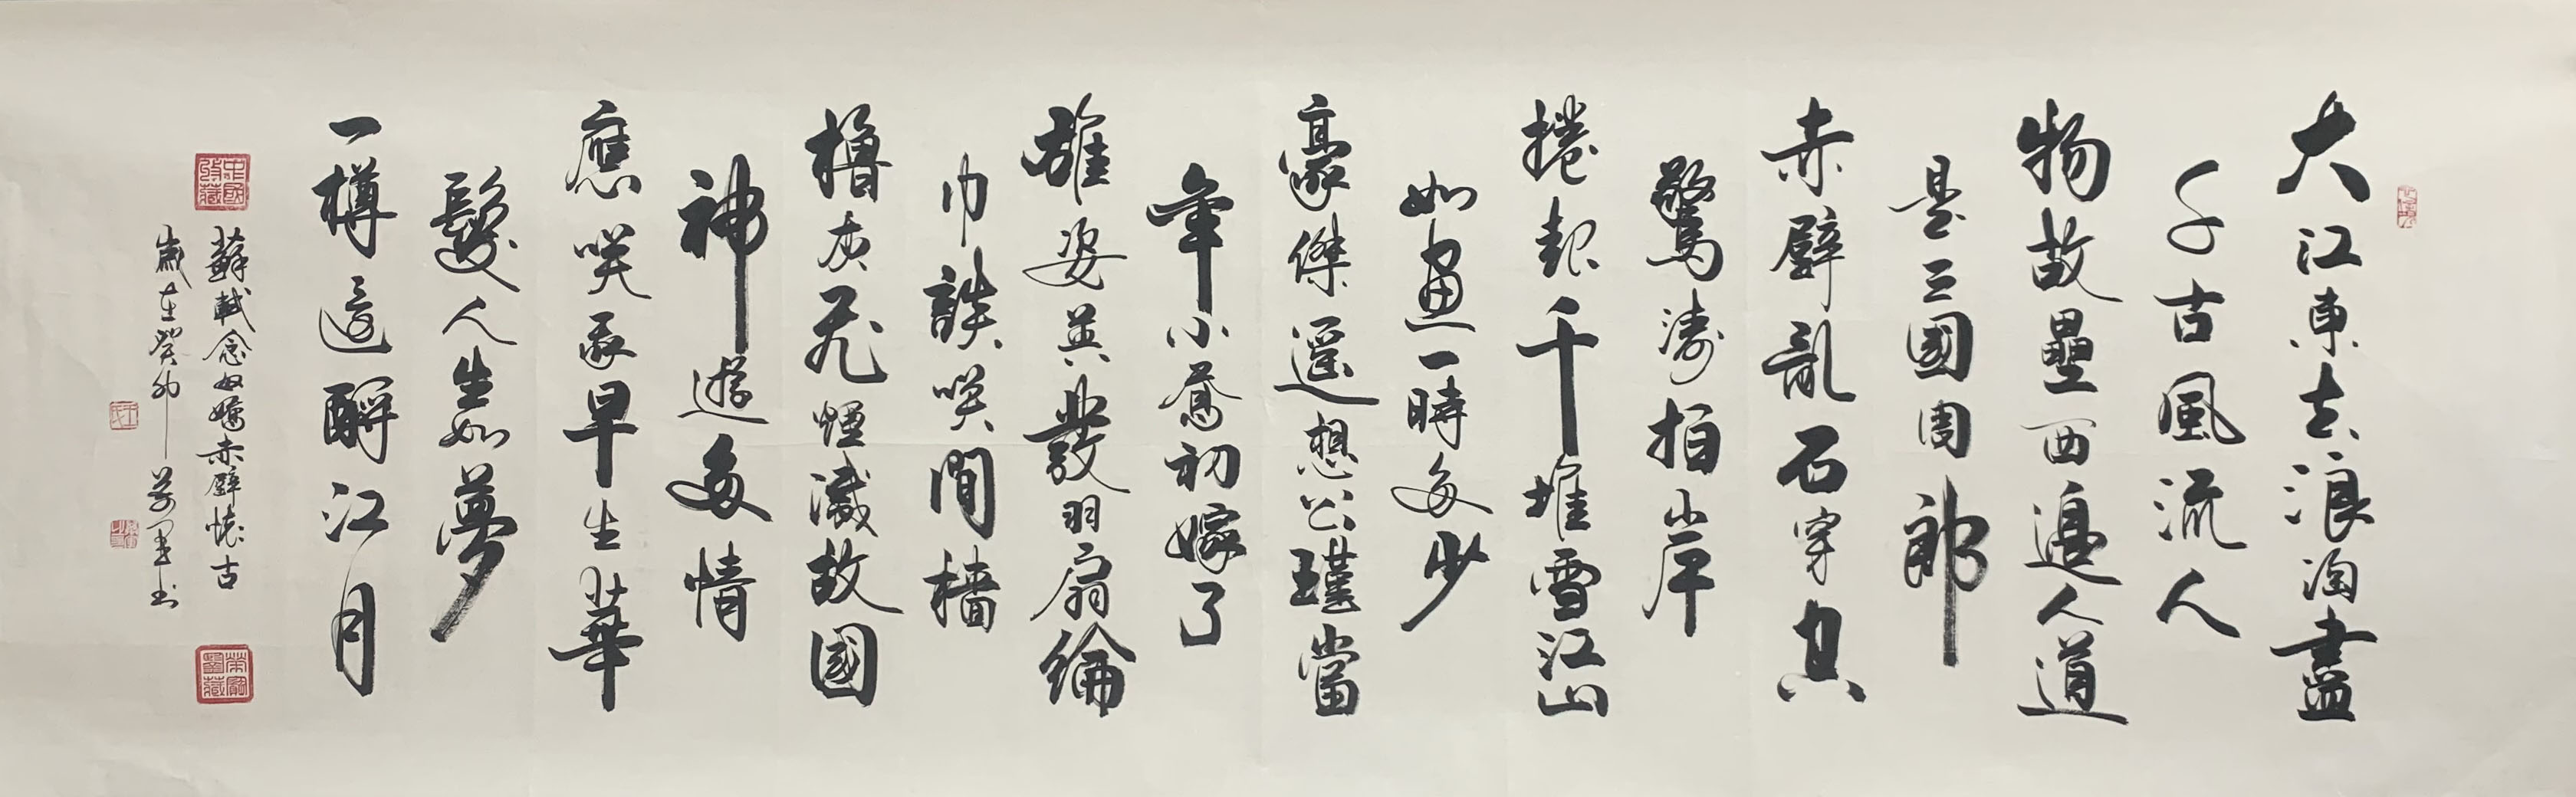 大江東去浪淘盡
千古風流人
物故壘西邊人道
是三國周郎
赤壁亂石穿空
驚濤拍岸
捲起千堆雪江山
如畫一時多少
豪傑遥想公瑾當
年小喬初嫁了
雄姿英發羽扇綸
巾談笑間檣
櫓灰飛煙滅故國
神遊多情
應笑我早生華
髮人生如夢
一樽還酹江月
蘇軾念奴嬌赤壁懷古
歲在癸卯
中國收藏